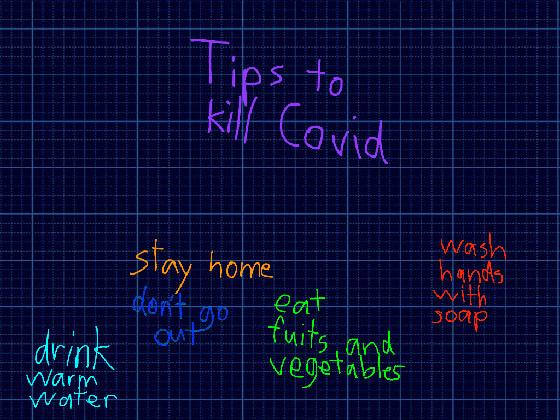 Tips to
kill Covid
stay home
don't go
out
drink
warm
water
eat
fuits and
vegetables
wash
hands
with
soap